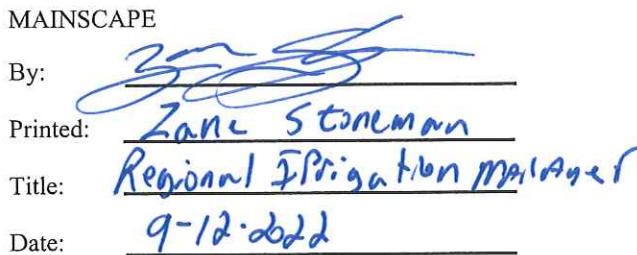 MAINSCAPE
By:
Printed: Zane Stoneman
Title: Regional Irrigation Manager
Date: 9-12-2022